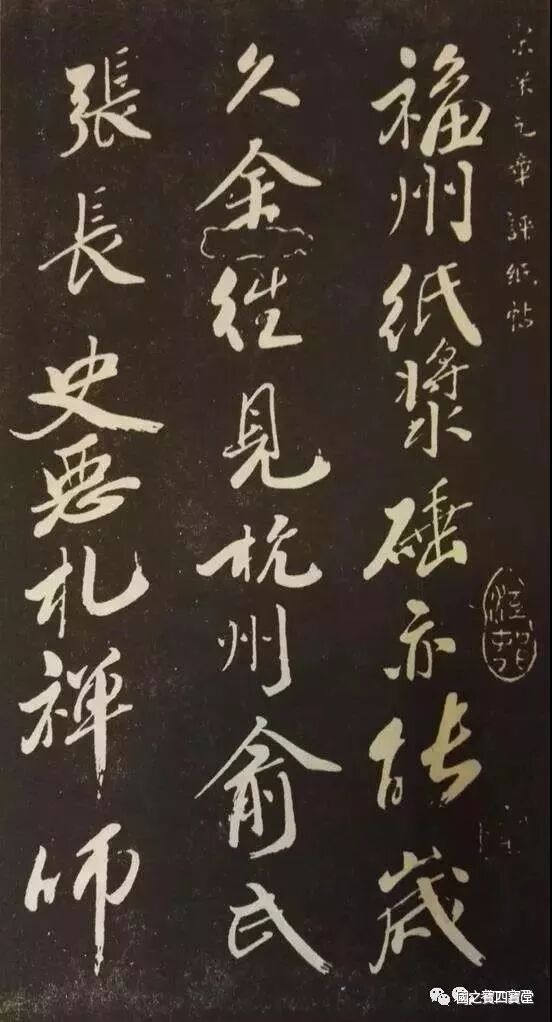 宋米元章評紙帖
福州紙漿硾亦能歲
久余往見杭州俞氏
張長史惡札禅師
國之寶四寶堂